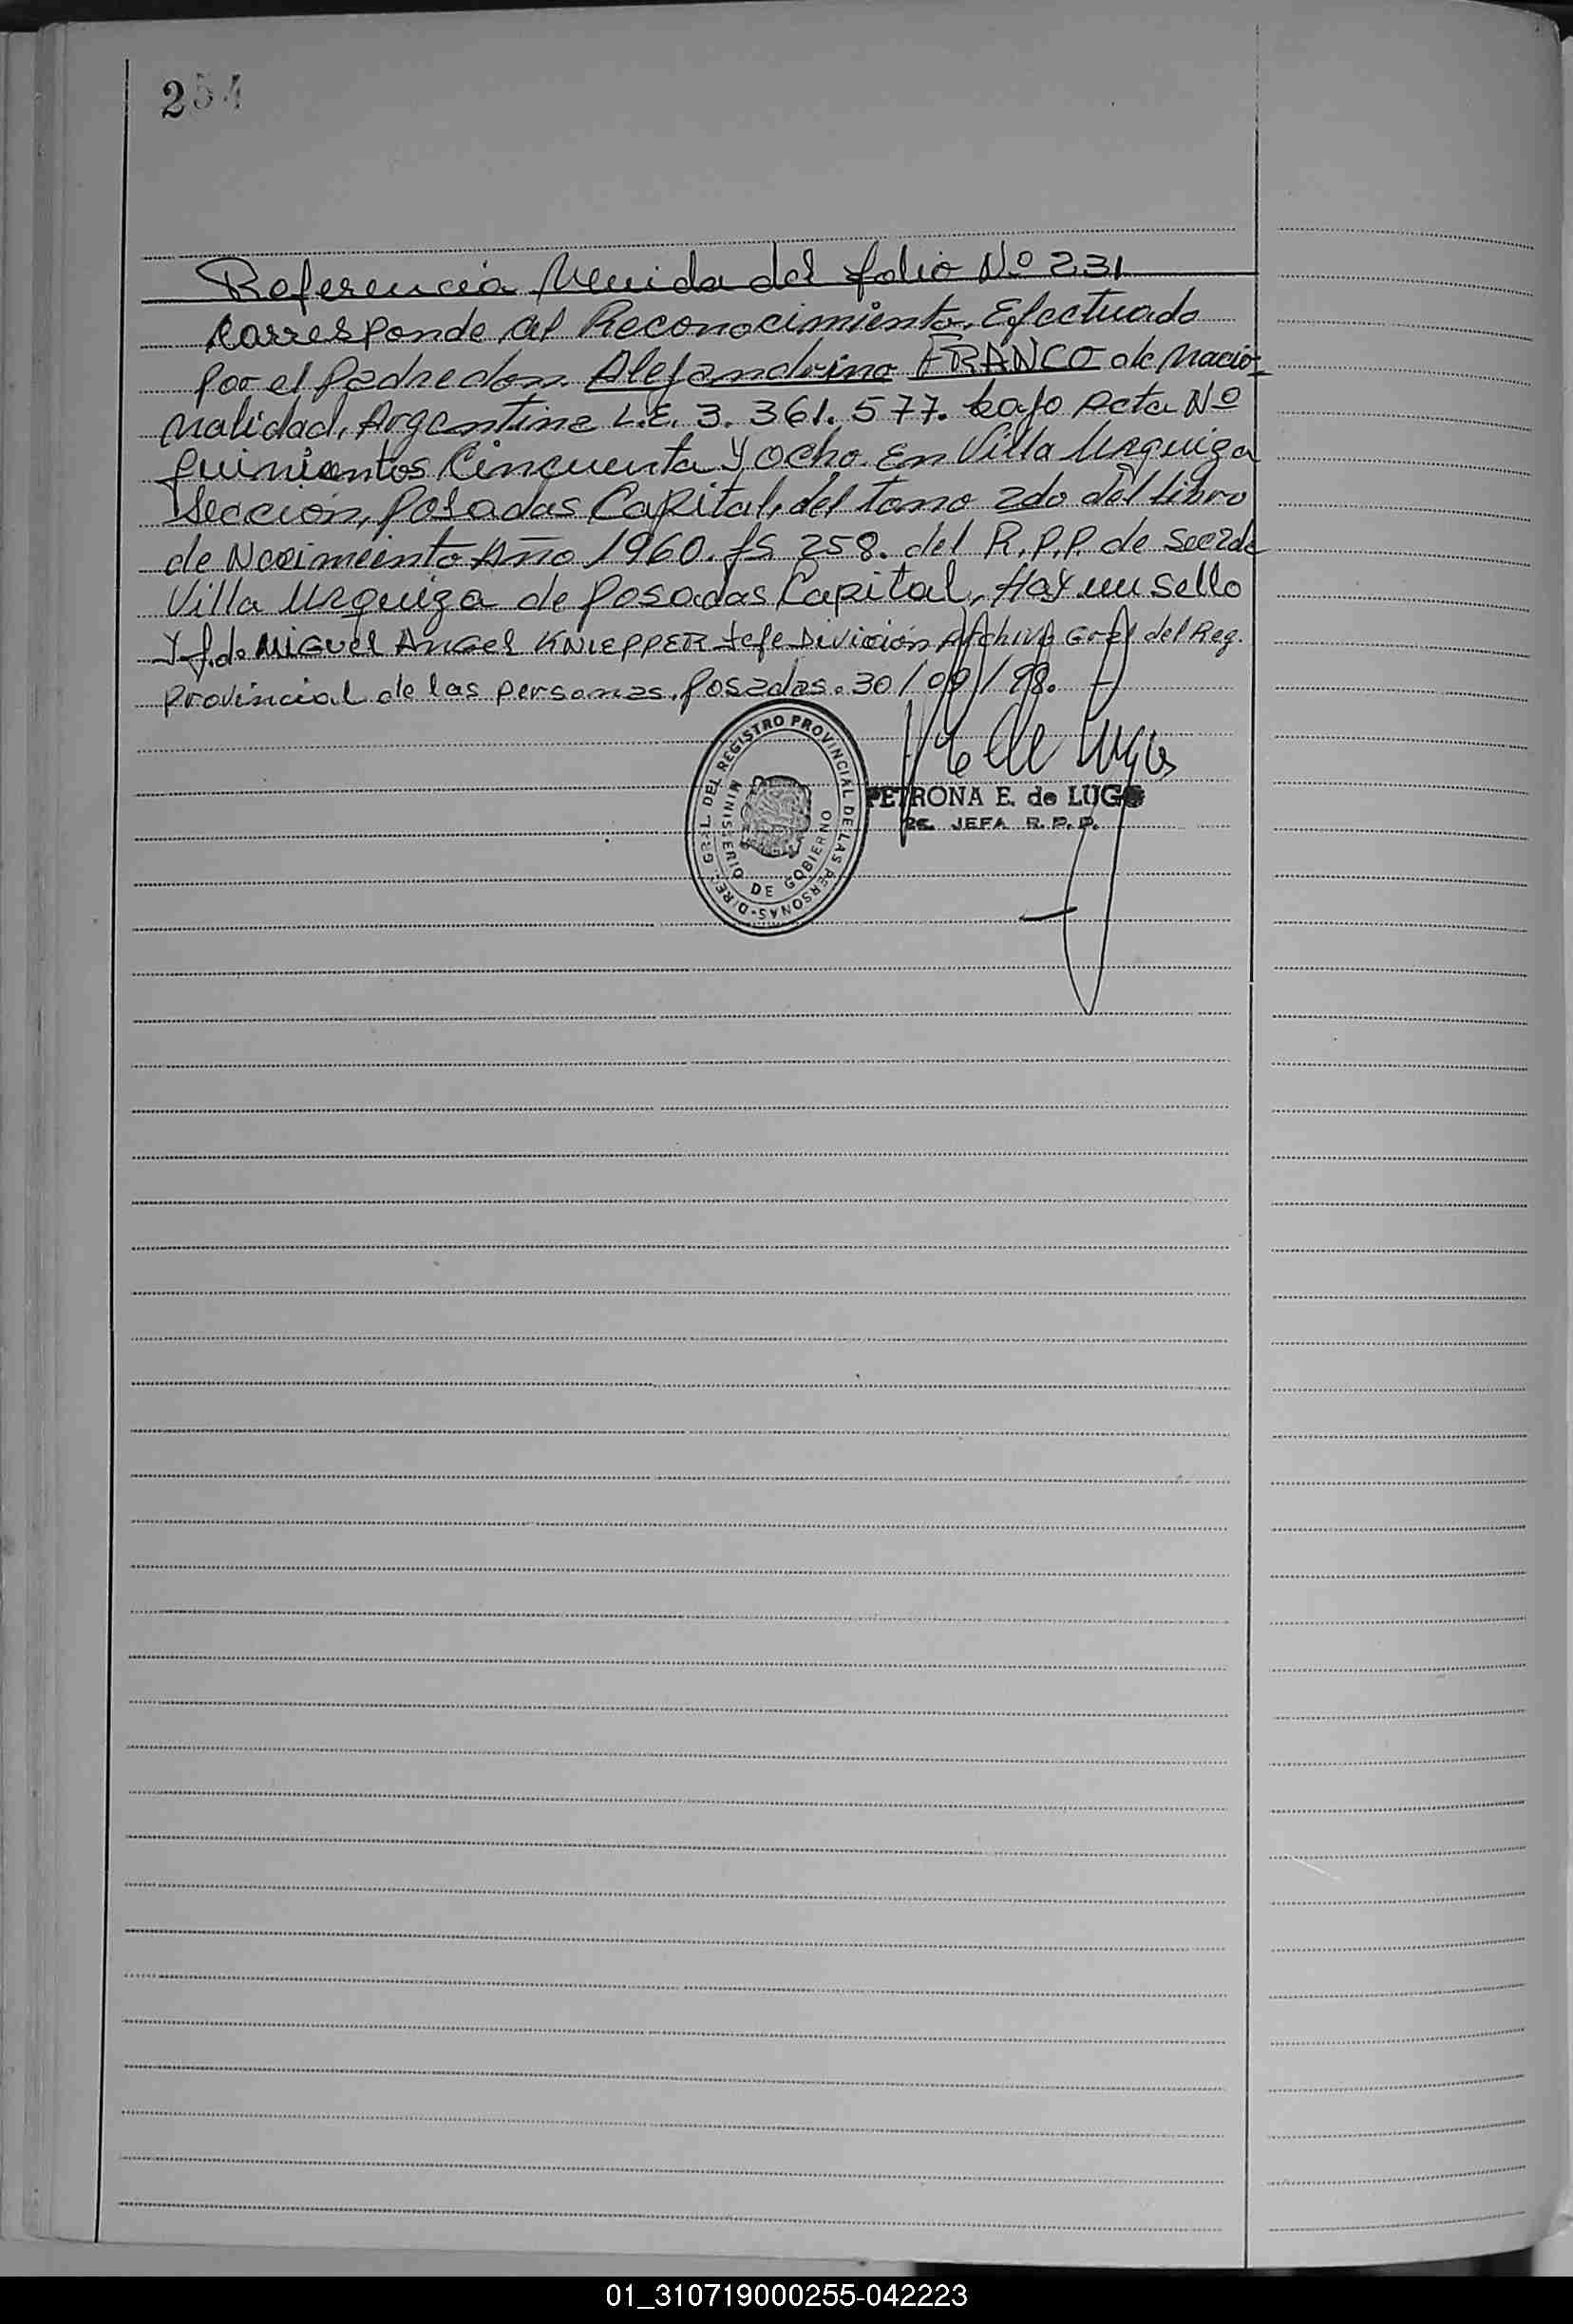 254
Referencia Venida del folio Nº 231
Corresponde al Reconocimiento, Efectuado
por el padre don. Alejandrino FRANCO de nacio-
nalidad, Argentina L.E. 3.361.577. bajo Acta Nº
quinientos Cincuenta y ocho. En Villa Urquiza
Sección, Posadas Capital, del tomo 2do del Libro
de Nacimiento Año 1960. fs 258. del R.P.P. de
Villa Urquiza de Posadas Capital, Hay un sello
y f. de MIGUEL ANGEL KNIEPPER Jefe División Archivo Gral del Reg.
provincial de las personas. Posadas. 30/09/88.
PETRONA E. de LUGO
JEFA R.P.P.
DIREC. GRAL. DEL REGISTRO PROVINCIAL DE LAS PERSONAS-
MINISTERIO DE GOBIERNO
01_310719000255-042223